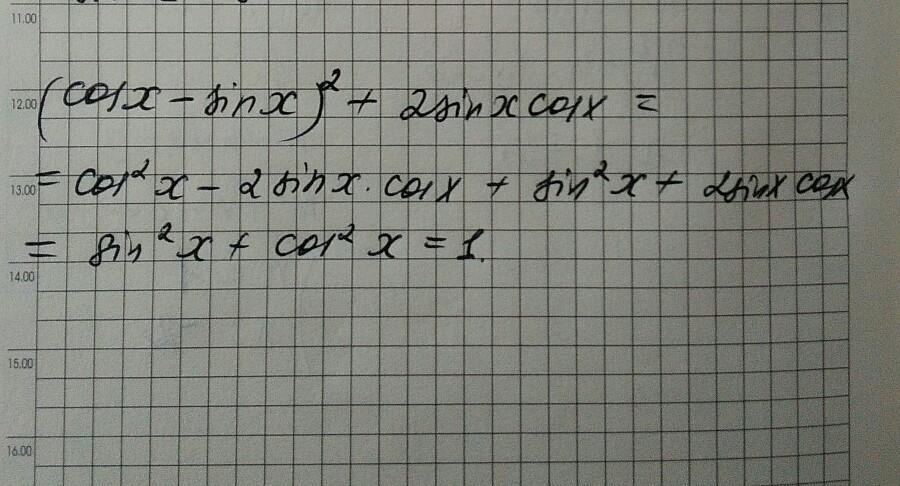 11.00
12.00 (cos x - sin x)² + 2 sin x cos x =
13.00 = cos² x - 2 sin x · cos x + sin² x + 2 sin x cos x
= sin² x + cos² x = 1.
14.00
15.00
16.00